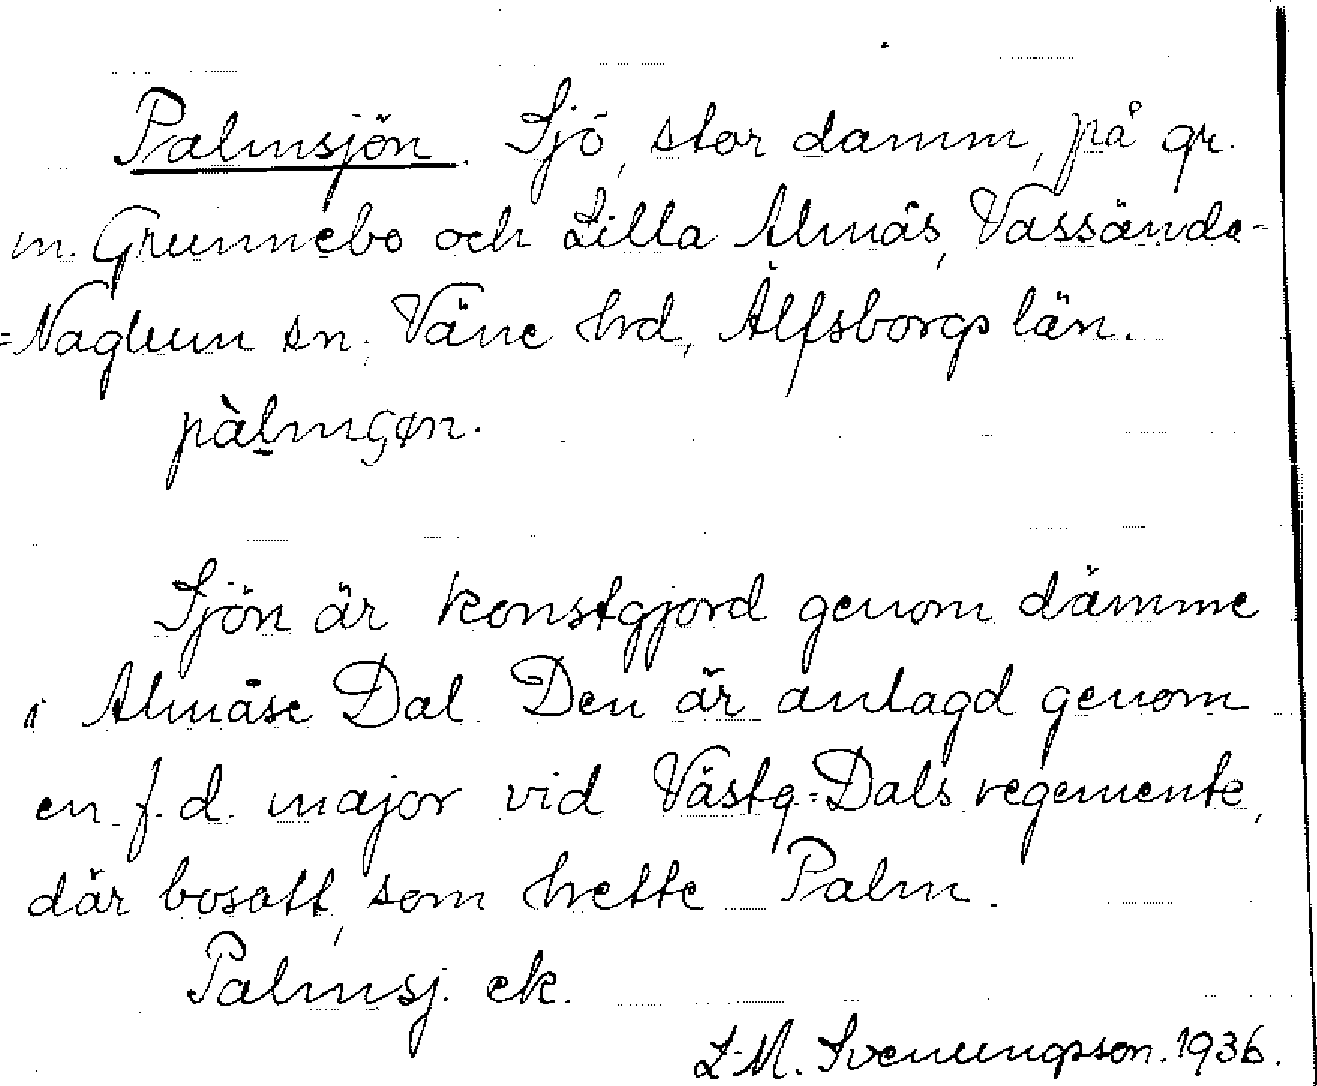 Palmsjön. Sjö, stor damm, på gr.
m. Grunnebo och Lilla Almås, Vassända-
=Naglum sn, Väne hrd, Älfsborgs län.
pàlmʂøn.
Sjön är konstgjord genom dämme
i Almåse Dal. Den är anlagd genom
en f.d. major vid Västg.=Dals regemente,
där bosatt, som hette Palm.
Palmsj. ek.
L.M. Svenungsson. 1936.